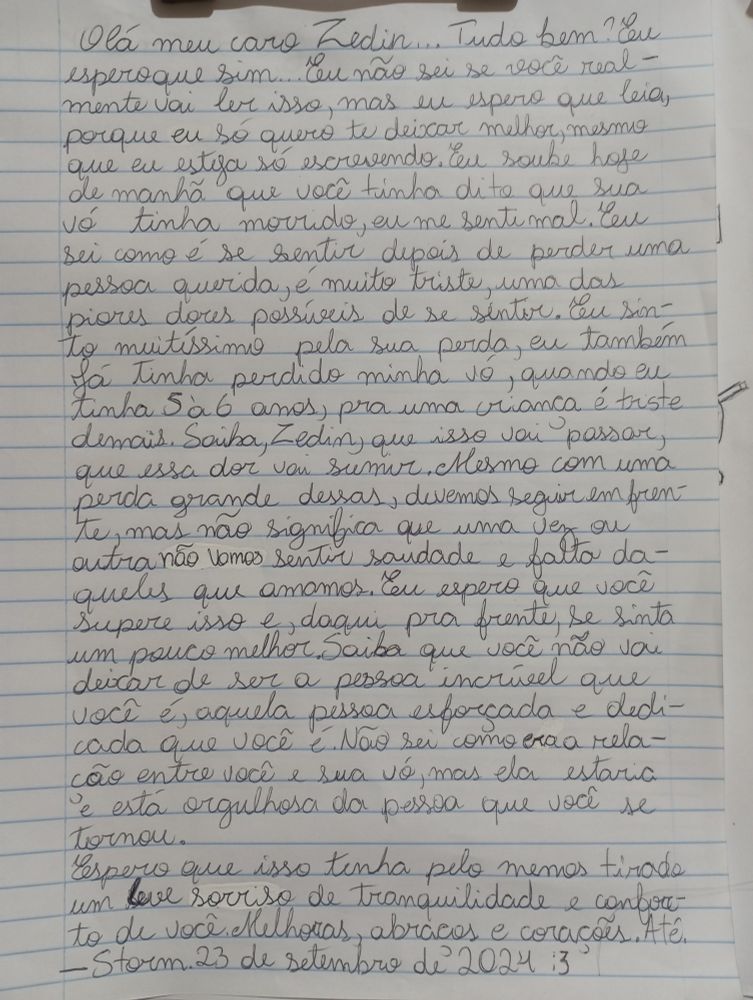 Olá meu caro Zedin... Tudo bem? Eu
espero que sim... Eu não sei se você real-
mente vai ler isso, mas eu espero que leia,
porque eu só quero te deixar melhor, mesmo
que eu esteja só escrevendo. Eu soube hoje
de manhã que você tinha dito que sua
vó tinha morrido, eu me senti mal. Eu
sei como é se sentir depois de perder uma
pessoa querida, é muito triste, uma das
piores dores possíveis de se sentir. Eu sin-
to muitíssimo pela sua perda, eu também
já tinha perdido minha vó, quando eu
tinha 5 à 6 anos, pra uma criança é triste
demais. Saiba, Zedin, que isso vai passar,
que essa dor vai sumir. Mesmo com uma
perda grande dessas, devemos seguir em fren-
te, mas não significa que uma vez ou
outra não vamos sentir saudade e falta da-
queles que amamos. Eu espero que você
supere isso e, daqui pra frente, se sinta
um pouco melhor. Saiba que você não vai
deixar de ser a pessoa incrível que
você é, aquela pessoa esforçada e dedi-
cada que você é. Não sei como era a rela-
ção entre você e sua vó, mas ela estaria
e está orgulhosa da pessoa que você se
tornou.
Espero que isso tenha pelo menos tirado
um leve sorriso de tranquilidade e confor-
to de você. Melhoras, abraços e corações. Até.
— Storm. 23 de setembro de 2024 :3